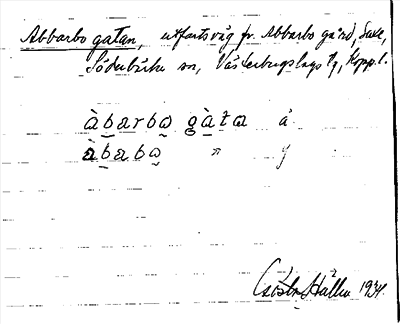 Abbarbo gatan, utfartsväg fr. Abbarbo gård, Saxe,
Söderbärke sn, Västerbergslags tg, Kopp. l.
àbarbɷ gàta å
àbabɷ " y
Hallin 1934.